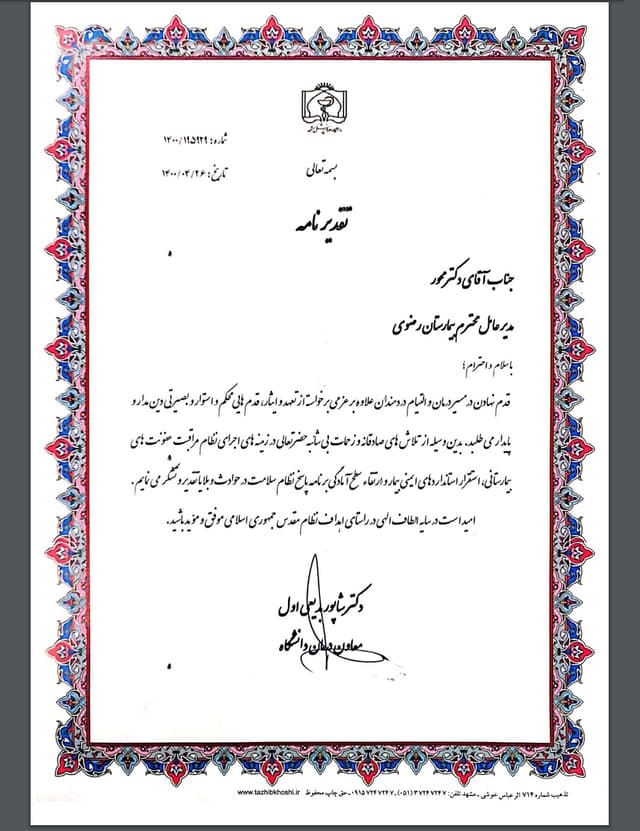 شماره: ۱۴۰۰/۱۹۵۹۲۹
بسمه تعالی
تاریخ: ۱۴۰۰/۰۴/۲۶
تقدیر نامه
جناب آقای دکتر محور
مدیر عامل محترم بیمارستان رضوی
با سلام و احترام؛
قدم نهادن در مسیر درمان و التیام دردمندان علاوه بر عزمی برخواسته از تعهد و ایثار، قدم هایی محکم و استوار و بصیرتی دین مدار و
پایدار می طلبد. بدین وسیله از تلاش های صادقانه و زحمات بی شائبه حضرتعالی در زمینه های اجرای نظام مراقبت عفونت های
بیمارستانی، استقرار استانداردهای ایمنی بیمار و ارتقاء سطح آمادگی برنامه پاسخ نظام سلامت در حوادث و بلایا تقدیر و تشکر می نمایم.
امید است در سایه الطاف الهی در راستای اهداف نظام مقدس جمهوری اسلامی موفق و مؤید باشید.
دکتر شاپور بدیعی اول
معاون درمان دانشگاه
تذهیب شماره ۷۱۴ اثر عباس خوشی ـ مشهد تلفن: ۳۷۲۴۷۲۴۷ (۰۵۱) ـ ۰۹۱۵۷۲۴۷۲۴۷ ـ حق چاپ محفوظ www.tazhibkhoshi.ir